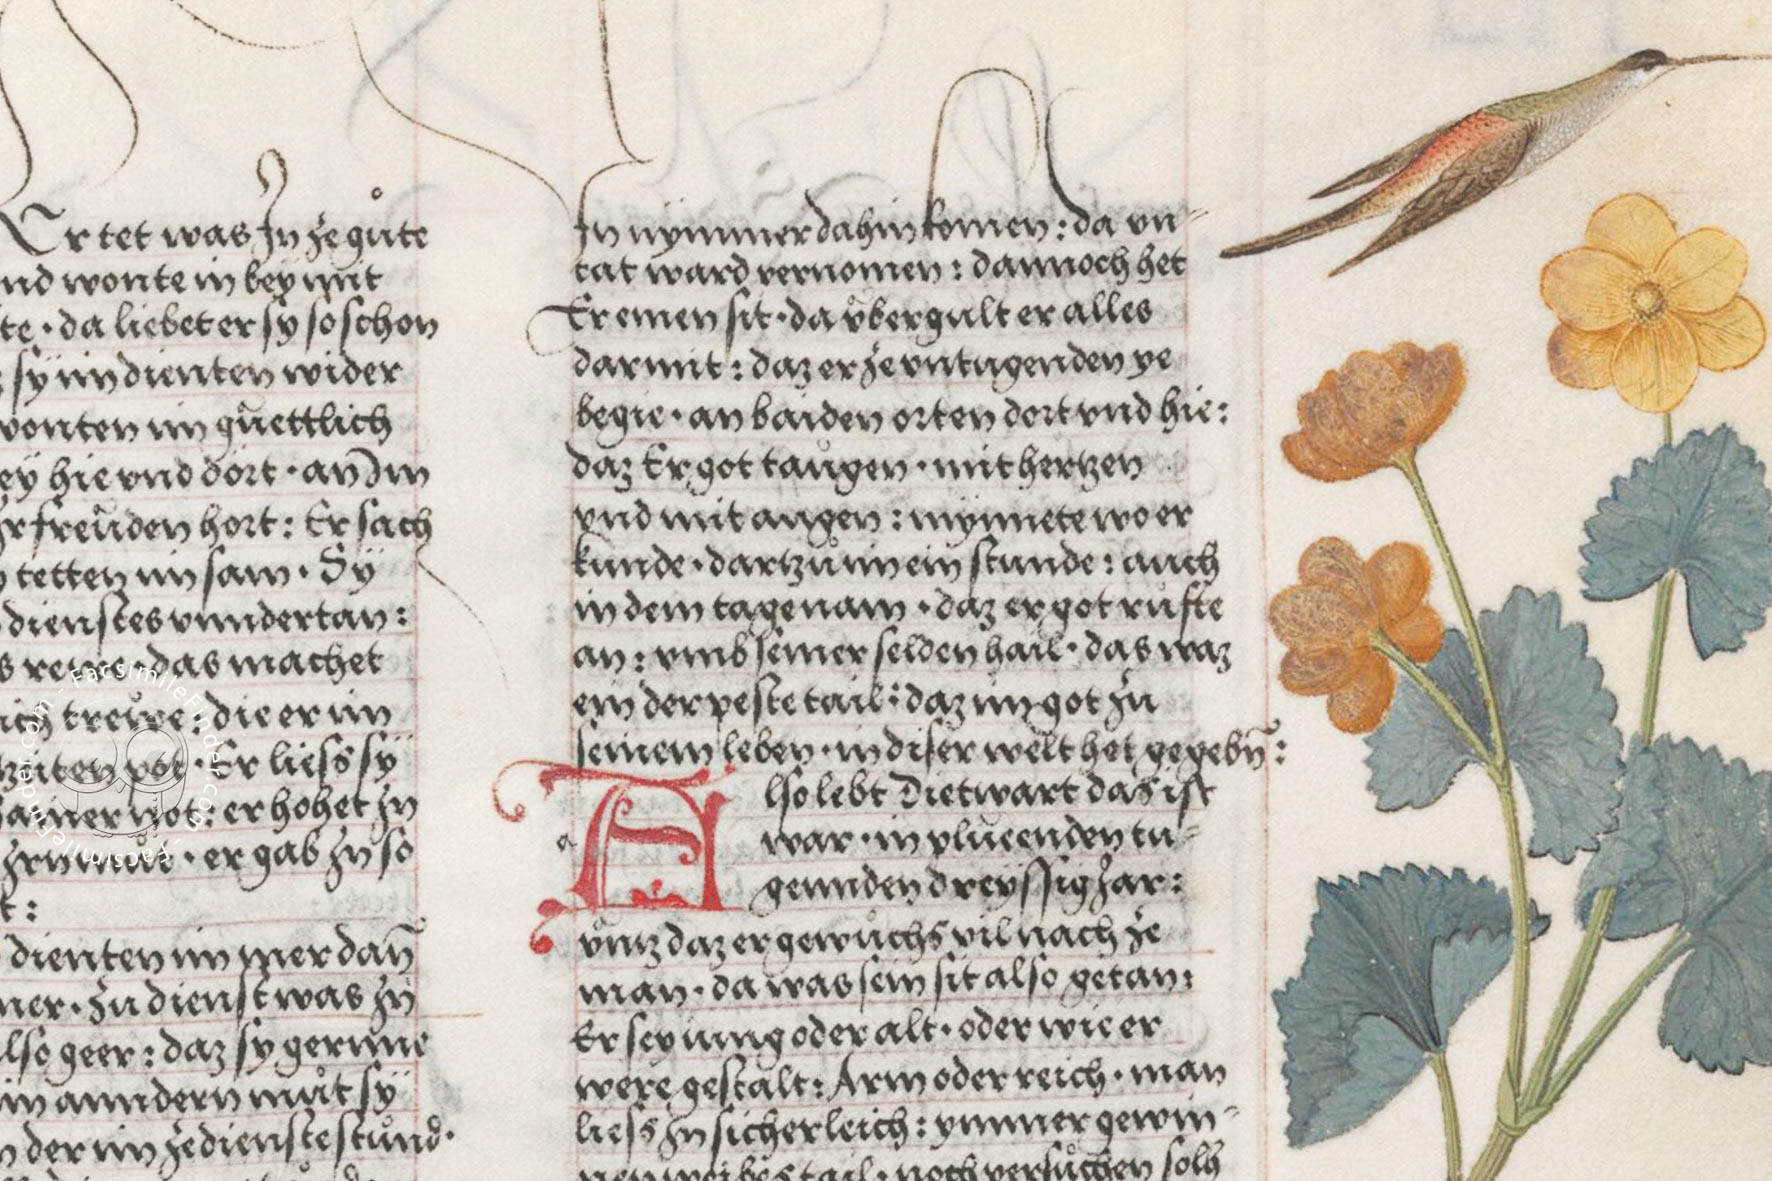 Er tet was Jn ze gůte
nd wonte in bey mit
te · da liebet er sy so schon
sÿ im dienten wider
wonten im güettlich
ey hie vnd dort · an Dm
Jr freüden hort : Er sach
tetten im sam · Sÿ
dienstes vnndertan :
s rewe · das machet
ich trewe : die er im
tzaiten pot · Er liess sÿ
ainer not : er hohet Jn
Jrn müt · er gab Jn so
t :
dienten im mer dan̄
mer · Zu dienst was Jn
also geer : daz sy gerinne
in anndern můt sÿ
n der im ze dienste stůnd ·
Jn nÿmmer dahin komen : da vn-
tat ward vernomen : dannoch het
Er einen sit · da vͤber gult er alles
darmit : daz er ze vntugenden ye
begie · an baiden orten dort vnd hie :
daz Er got taůgen · mit hertzen
vnd mit augen : mÿnnete wo er
kunde · dartzů im ein stunde : auch
in dem tage nam · daz er got růfte
an : vmb seiner selden hail · das waz
ein der peste tail : daz im got zu
seinem leben · in diser welt het gegebn̄ :
a
Also lebt Dietwart das ist
war · in plüeenden tu-
gennden dreyssig Jar :
vͤntz daz er gewůchs vil nach ze
man · da was sein sit also getan :
Er sey iung oder alt · oder wie er
were gestalt : Arm oder reich · man
liess Jn sicherleich : ymmer gewin-
nen weibes tail · noch versůchen solh
FacsimileFinder.com · FacsimileFinder.com · FacsimileFinder.com